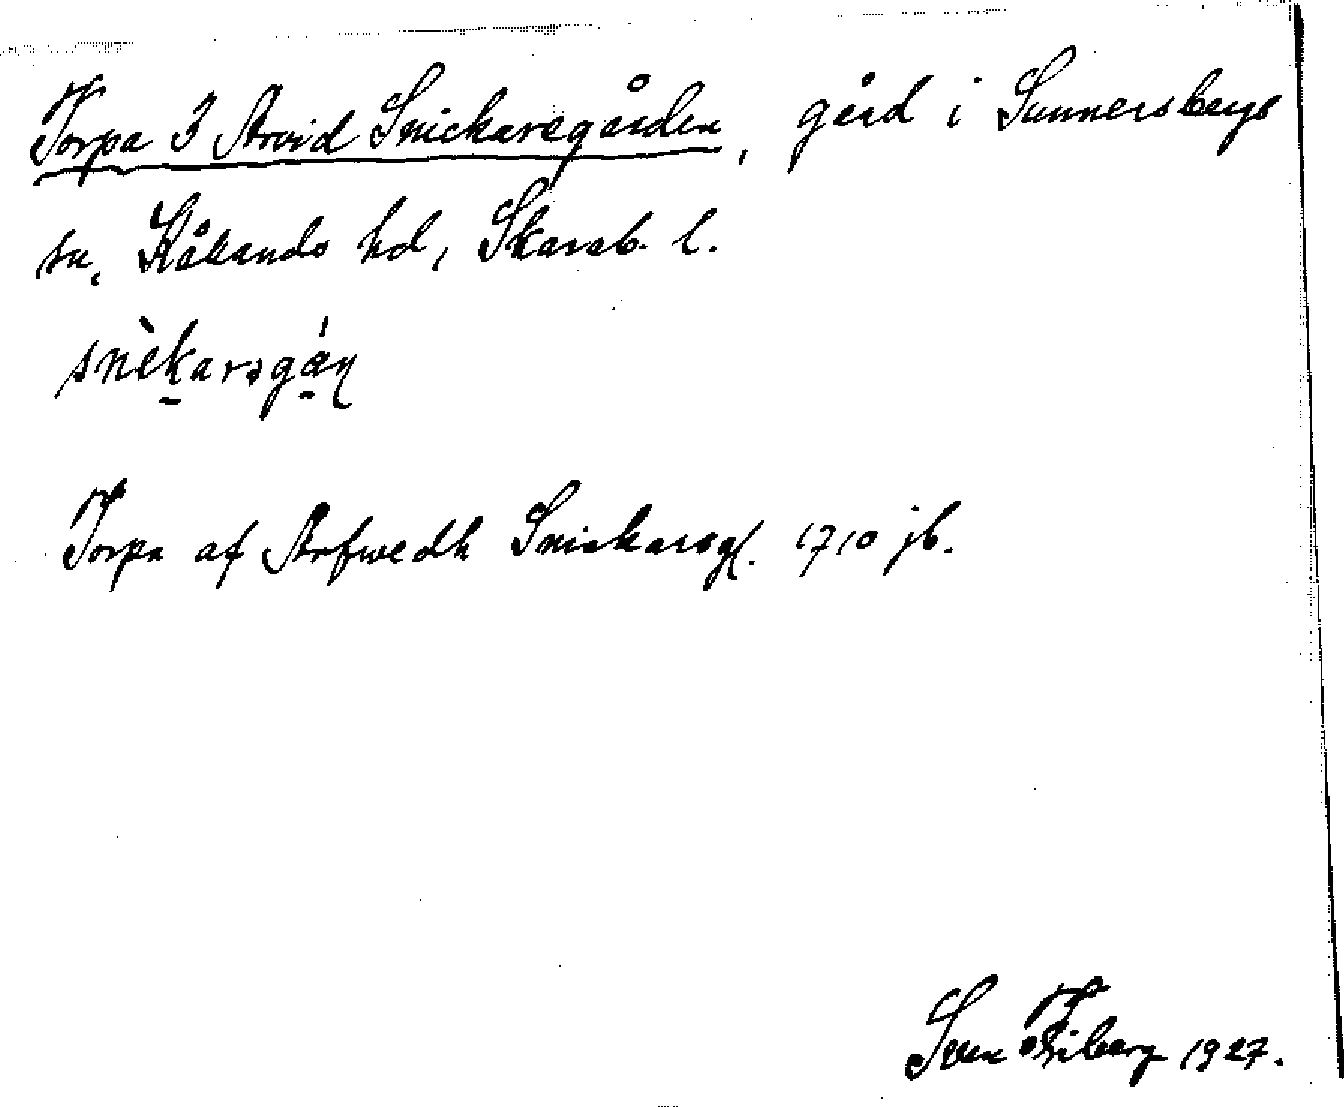 Torpa 3 Arvid Snickaregården, gård i Sunnersbergs
sn, Kållands hd, Skarab. l.
snèkarəgán
Torpa af Arfwedh Snickaregl. 1710 jb.
Sven Fiberg 1927.